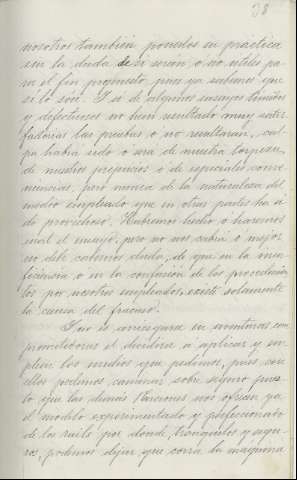 38
nosotros tambien ponerlos en práctica
sin la duda de si seran o no utiles pa-
ra el fin propuesto pues ya sabemos que
si lo son. Y si de algunos ensayos timidos
y defectuosos no han resultado muy satis-
factorias las pruebas o no resultaran, cul-
pa habrá sido o será de nuestra torpeza,
de nuestros prejuicios ó de especiales conve-
niencias, pero nunca de la naturaleza del
medio empleado que en otras partes ha si-
do provechoso. Habremos hecho ó haremos
mal el ensayo, pero no nos cabrá ó mejor,
no debe cabernos duda, de que en la insu-
ficiencia ó en la confusión de los procedimien-
tos por nosotros empleados, existe solamente
la causa del fracaso.
No se corre, pues, en aventuras com-
prometedoras el decidirse á aplicar y em-
plear los medios que pedimos, pues con
ellos podemos caminar sobre seguro pues-
to que las demas Naciones nos ofrecen ya
el modelo experimentado y perfeccionado
de los rails por donde, tranquilos y segu-
ros, podemos dejar que corra la maquina